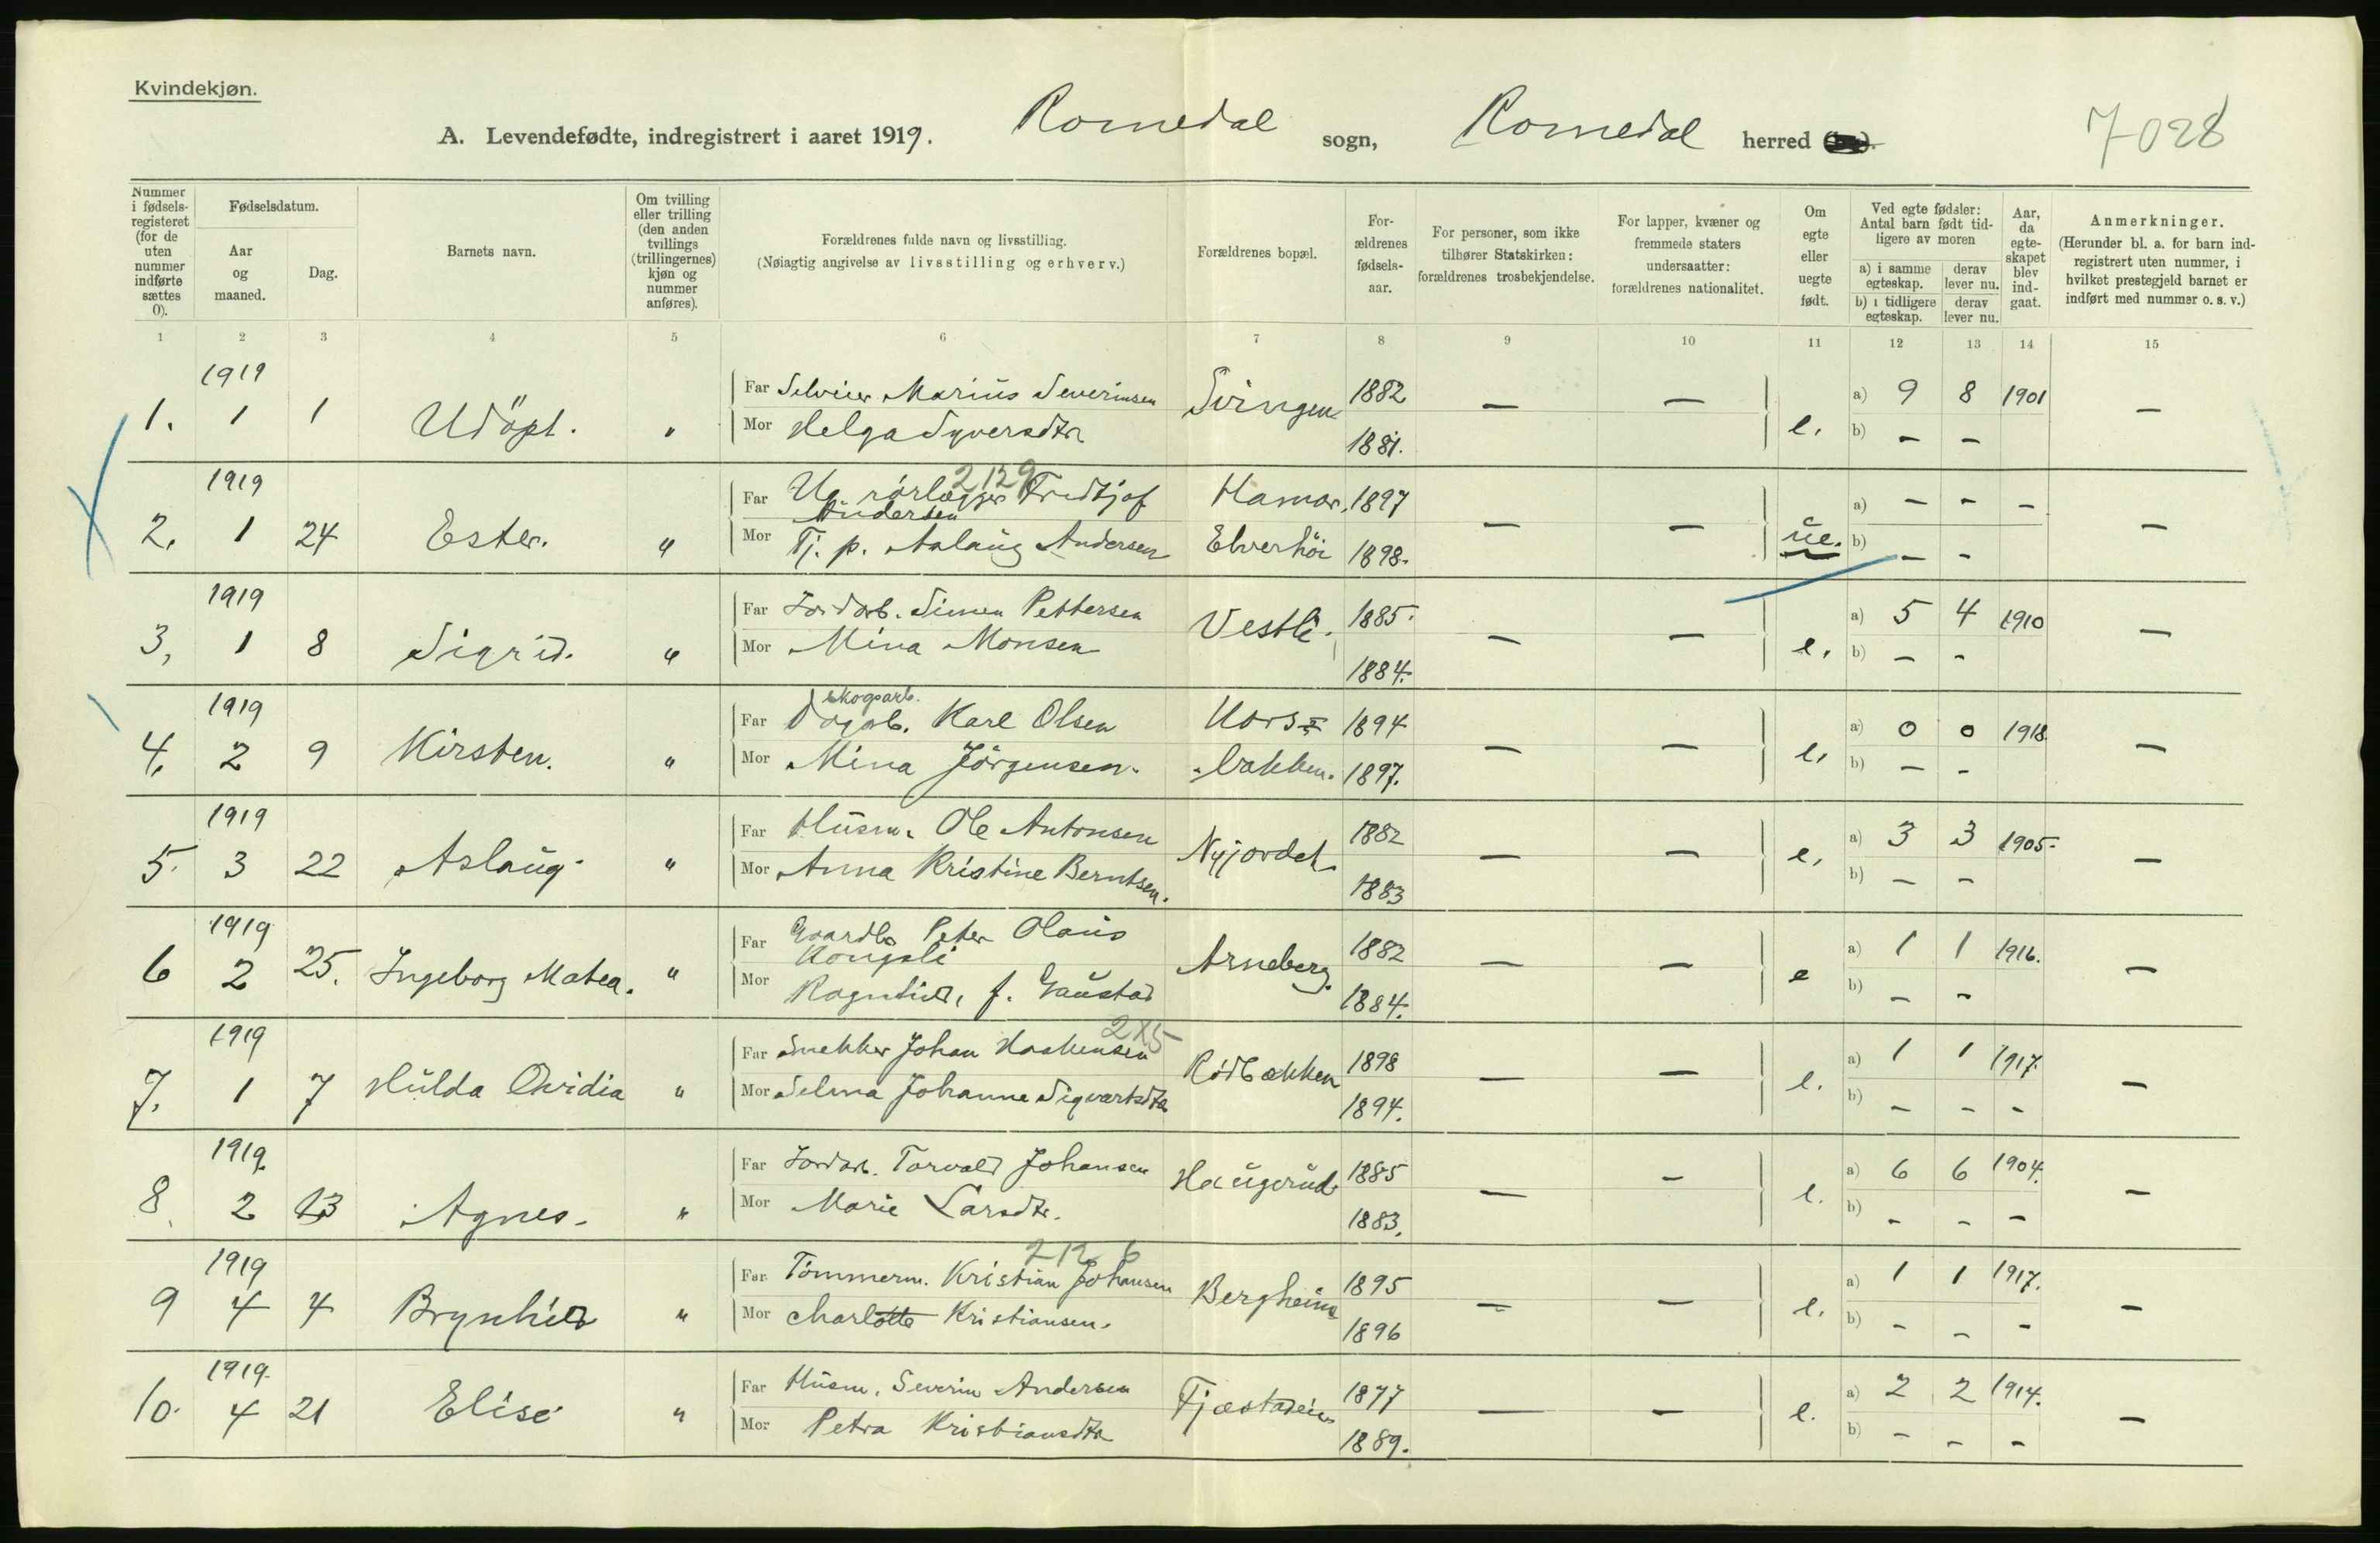 Kvindekjøn.
A. Levendefødte, indregistrert i aaret 1919. Romedal sogn, Romedal herred
7028
Nummer i fødselsregisteret (for de uten nummer indførte sættes 0).
Fødselsdatum.
Aar og maaned.
Dag.
Barnets navn.
Om tvilling eller trilling (den anden tvillings (trillingernes) kjøn og nummer anføres).
Forældrenes fulde navn og livsstilling.
(Nøiagtig angivelse av livsstilling og erhverv.)
Forældrenes bopæl.
Forældrenes fødselsaar.
For personer, som ikke tilhører Statskirken: forældrenes trosbekjendelse.
For lapper, kvæner og fremmede staters undersaatter: forældrenes nationalitet.
Om egte eller uegte født.
Ved egte fødsler: Antal barn født tidligere av moren
a) i samme egteskap.
derav lever nu.
b) i tidligere egteskap.
derav lever nu.
Aar, da egteskapet blev indgaat.
Anmerkninger.
(Herunder bl. a. for barn indregistrert uten nummer, i hvilket prestegjeld barnet er indført med nummer o. s. v.)
1 2 3 4 5 6 7 8 9 10 11 12 13 14 15
1919
1. 1 1 Udöpt. "
Far Selveier Marius Severinsen Svingen 1882 — — a) 9 8 1901 —
Mor Helga Syversdtr 1881. e. b) — —
1919 2129
2. 1 24 Ester. "
Far Ug. rörlægger Fridtjof Andersen Hamar. 1897 — — a) — — — —
Mor Tj. p. Aslaug Andersen Elverhöi 1898. ue. b) — —
1919
3, 1 8 Sigrid. "
Far Jordarb. Simen Pettersen Vestli. 1885. — — a) 5 4 1910 —
Mor Mina Monsen 1884. e. b) — —
1919 skogsarb.
4. 2 9 Kirsten. "
Far Karl Olsen Kors= 1894 — — a) 0 0 1918. —
Mor Mina Jörgensen. bakken. 1897. e, b) — —
1919
5. 3 22 Aslaug. "
Far Husm. Ole Antonsen Nyjordet 1882 — — a) 3 3 1905. —
Mor Anna Kristine Berntsen. 1883 e, b) — —
1919
6 2 25. Ingeborg Matea. "
Far Gaardbr Peter Olaus Kongsli Arneberg. 1882 — — a) 1 1 1916. —
Mor Ragnhild, f. Gaustad 1884. e b) — —
1919 215
7. 1 7 Hulda Ovidia "
Far Snekker Johan Haakensen Rödbækken 1898 — — a) 1 1 1917. —
Mor Selma Johanne Sigvartsdtr 1894. e. b) — — —
1919.
8. 2 13 Agnes. "
Far Jordarb. Torvald Johansen Haugerud 1885 — — a) 6 6 1904. —
Mor Marie Larsdtr. 1883. e. b) — — —
1919 2126
9 4 4 Brynhild "
Far Tömmerm. Kristian Johansen Bergheim 1895 — — a) 1 1 1917. —
Mor Charlotte Kristiansen. 1896 e. b) — — —
1919.
10. 4 21 Elise "
Far Husm. Severin Andersen Fjæstadeie 1877 — — a) 2 2 1914. —
Mor Petra Kristiansdtr 1889. e. b) — — —